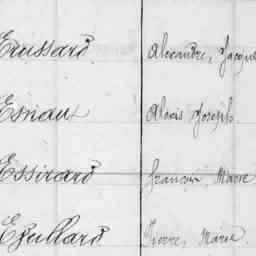 Erussard Alexandre, Jacques
Esnaux Alexis Joseph
Essirard François, Marie
Eguillard Pierre, Marie